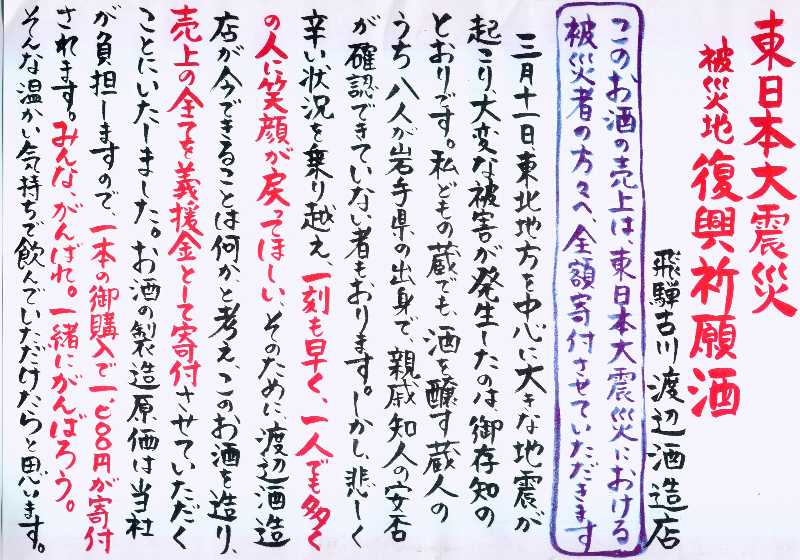 東日本大震災
被災地復興祈願酒
飛騨古川渡辺酒造店
このお酒の売上は東日本大震災における
被災者の方々へ、全額寄付させていただきます
三月十一日、東北地方を中心に大きな地震が
起こり、大変な被害が発生したのは、御存知の
とおりです。私どもの蔵でも、酒を醸す蔵人の
うち八人が岩手県の出身で、親戚知人の安否
が確認できていない者もおります。しかし、悲しく
辛い状況を乗り越え、一刻も早く、一人でも多く
の人に笑顔が戻ってほしい、そのために、渡辺酒造
店が今できることは何かと考え、このお酒を造り、
売上の全てを義援金として寄付させていただく
ことにいたしました。お酒の製造原価は当社
が負担しますので、一本の御購入で一、〇〇〇円が寄付
されます。みんな、がんばれ。一緒にがんばろう。
そんな温かい気持ちで飲んでいただけたらと思います。